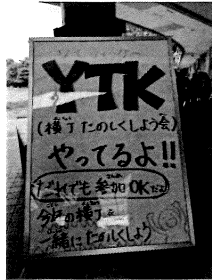 YTK
(横丁たのしくしよう会)
やってるよ!!
だれでも参加OKだよ
今日の横丁を
一緒にたのしくしよう